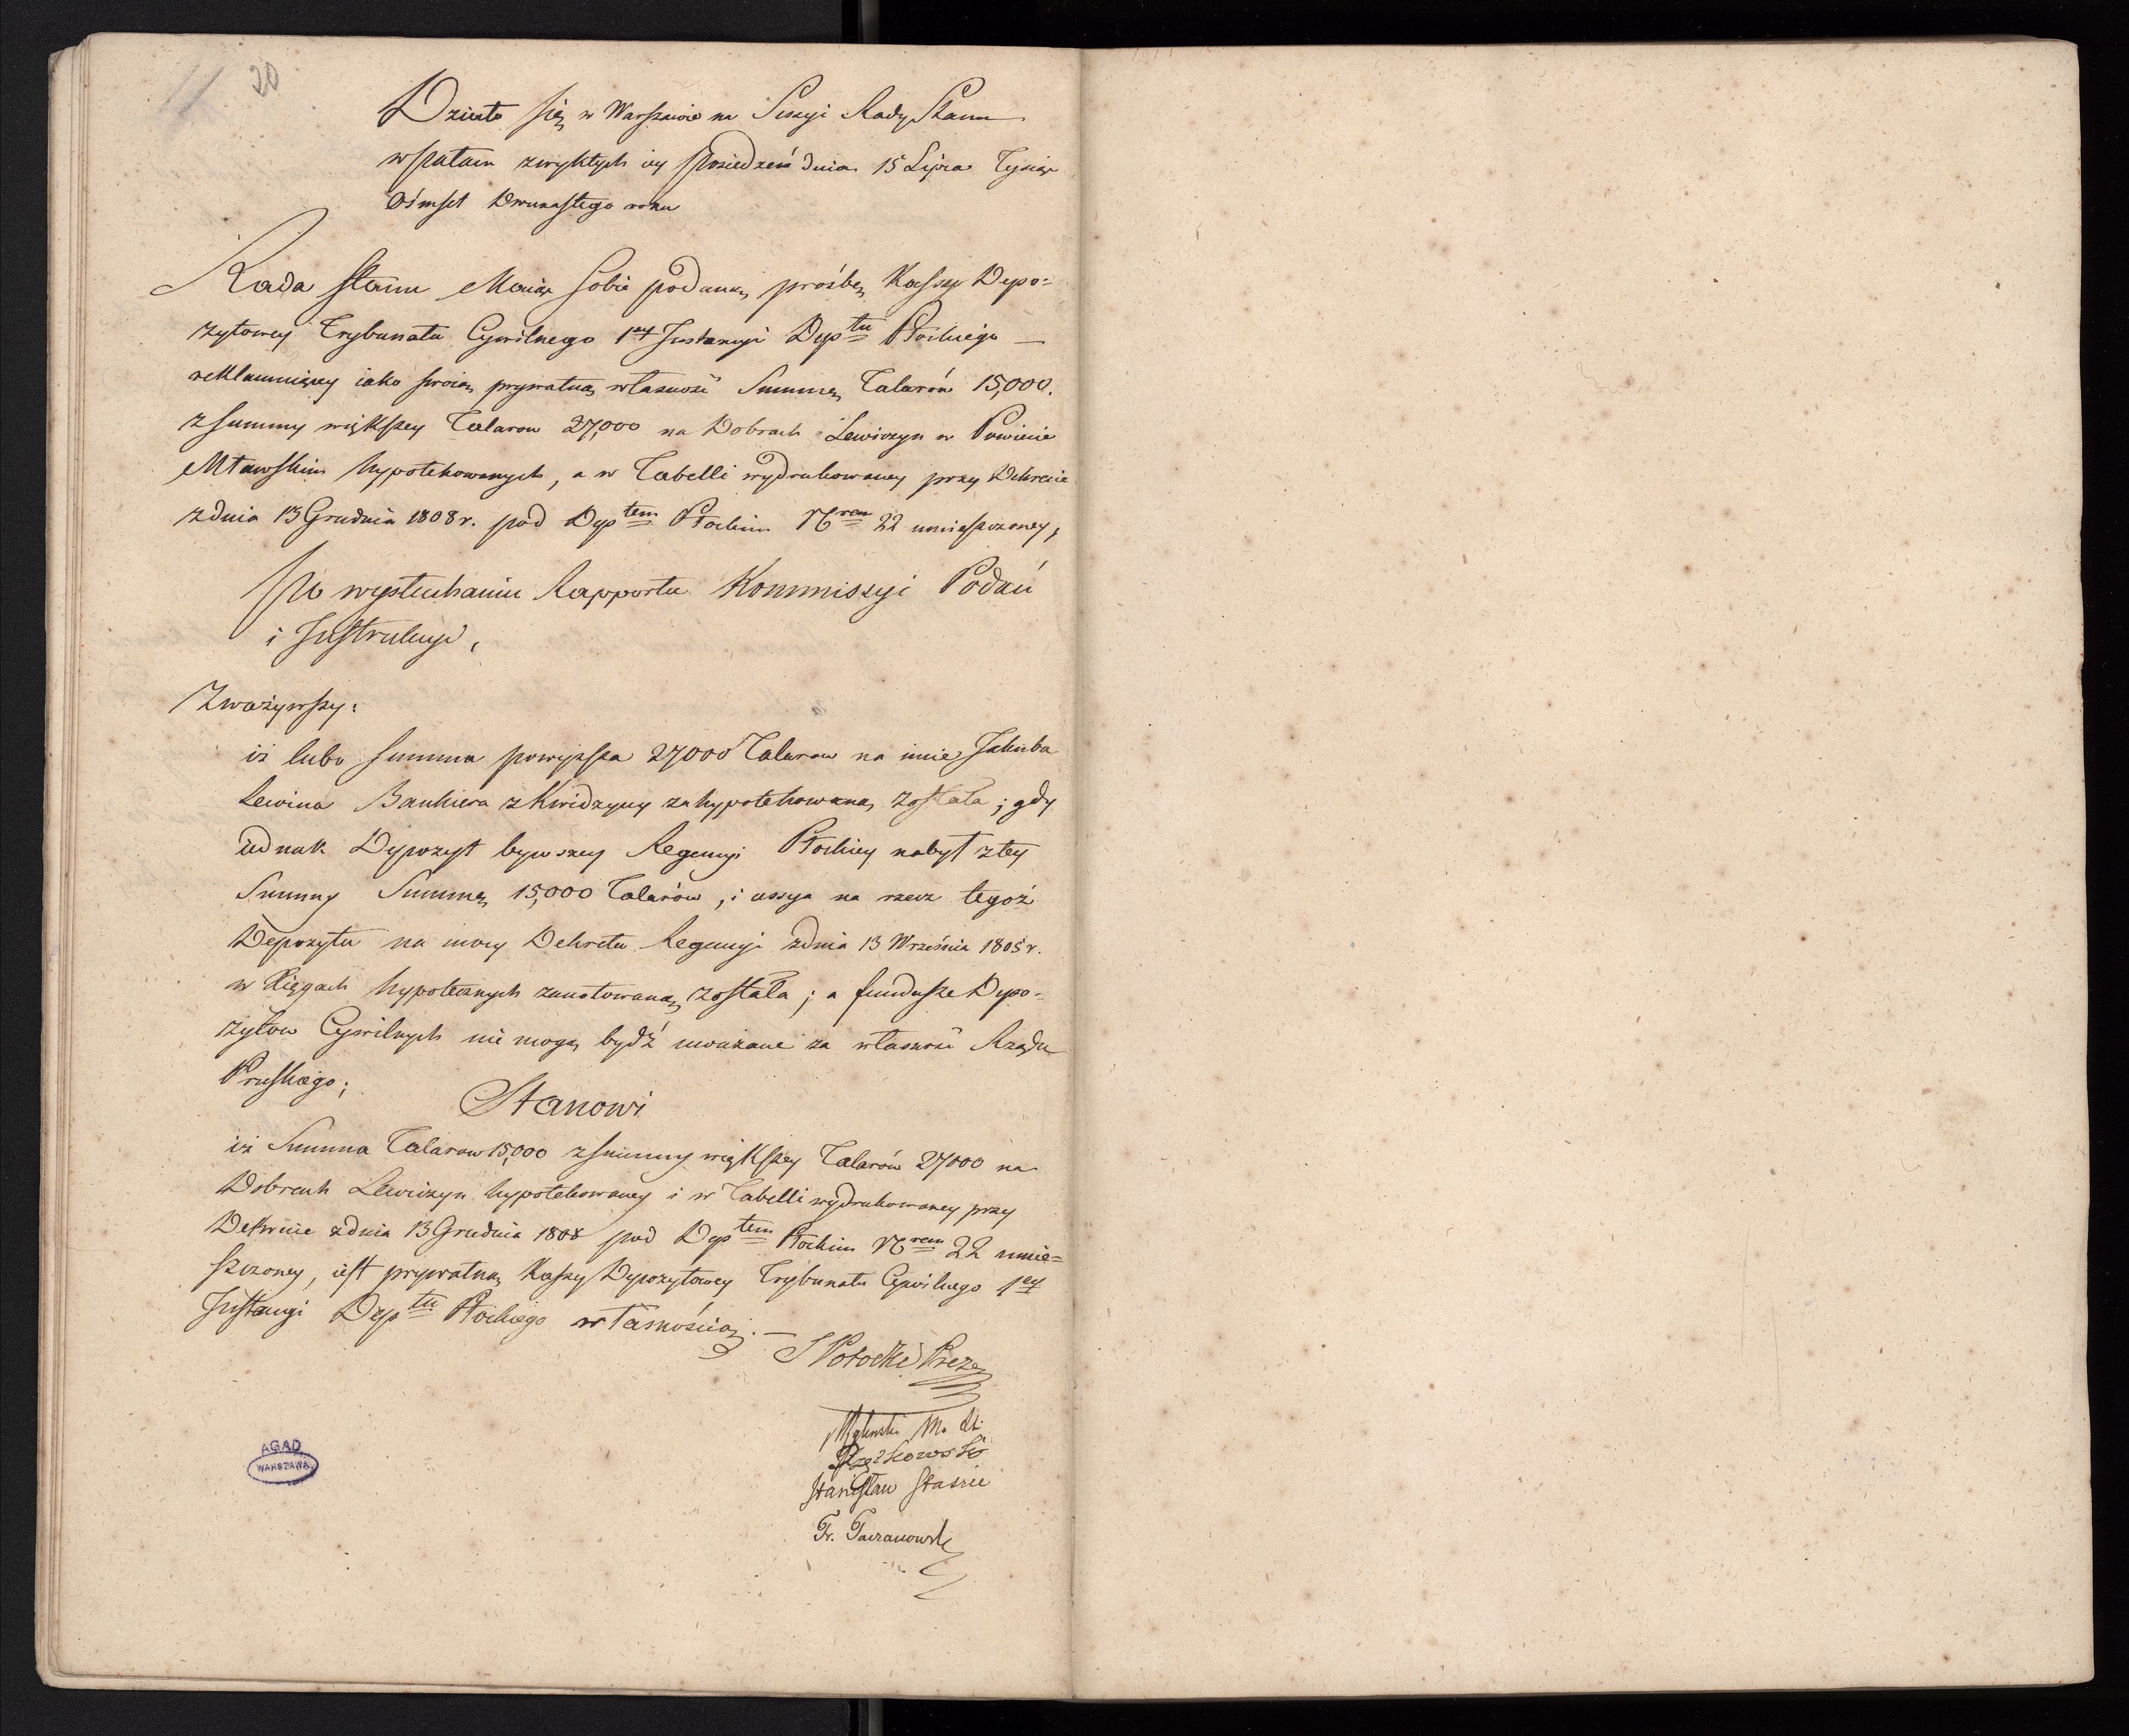 11 20
Działo się w Warszawie na Sessyi Rady Stanu
w pałacu zwykłych iey posiedzeń dnia 15 Lipca Tysiąc
Ośmset Dwunastego roku
Rada Stanu Maiąc sobie podaną prośbę Kassy Depo=
zytowey Trybunału Cywilnego 1ey Instancyi Deptu Płockiego —
reklamuiącey iako swoią prywatną własność Summę Talarów 15,000.
z summy większey Talarow 27,000 na Dobrach Lewiczyn w Powiecie
Mławskim hypotekowanych, a w Tabelli wydrukowaney przy Dekrecie
z dnia 13 Grudnia 1808 r. pod Deptem Płockim Nrem 22 umieszczoney,
Po wysłuchaniu Rapportu Kommissyi Podań
i Instrukcyi,
Zważywszy:
iż lubo summa powyższa 27000 Talarow na imie Jakuba
Lewina Bankiera z Kwidzyny zahypotekowaną została; gdy
iednak Depozyt bywszey Regencyi Płockiey nabył z tey
Summy Summę 15,000 Talarów, i cessya na rzecz tegoż
Depozytu na mocy Dekretu Regencyi z dnia 13 Września 1805 r.
w Xięgach hypotecznych zanotowaną została; a fundusze Depo=
zytow Cywilnych nie mogą bydź uważane za własność Rządu
Pruskiego;
Stanowi
iż Summa Talarow 15,000 z summy większey Talarów 27000 na
Dobrach Lewiczyn hypotekowaney i w Tabelli wydrukowaney przy
Dekrecie z dnia 13 Grudnia 1808 pod Deptem Płockim Nrem 22 umie=
szczoney, iest prywatną Kassy Depozytowey Trybunału Cywilnego 1ey
Instancyi Deptu Płockiego własnością. —
S Potocki Prezes
M. St.
Stanisław Staszic
Fr. Paszanowski
AGAD
WARSZAWA